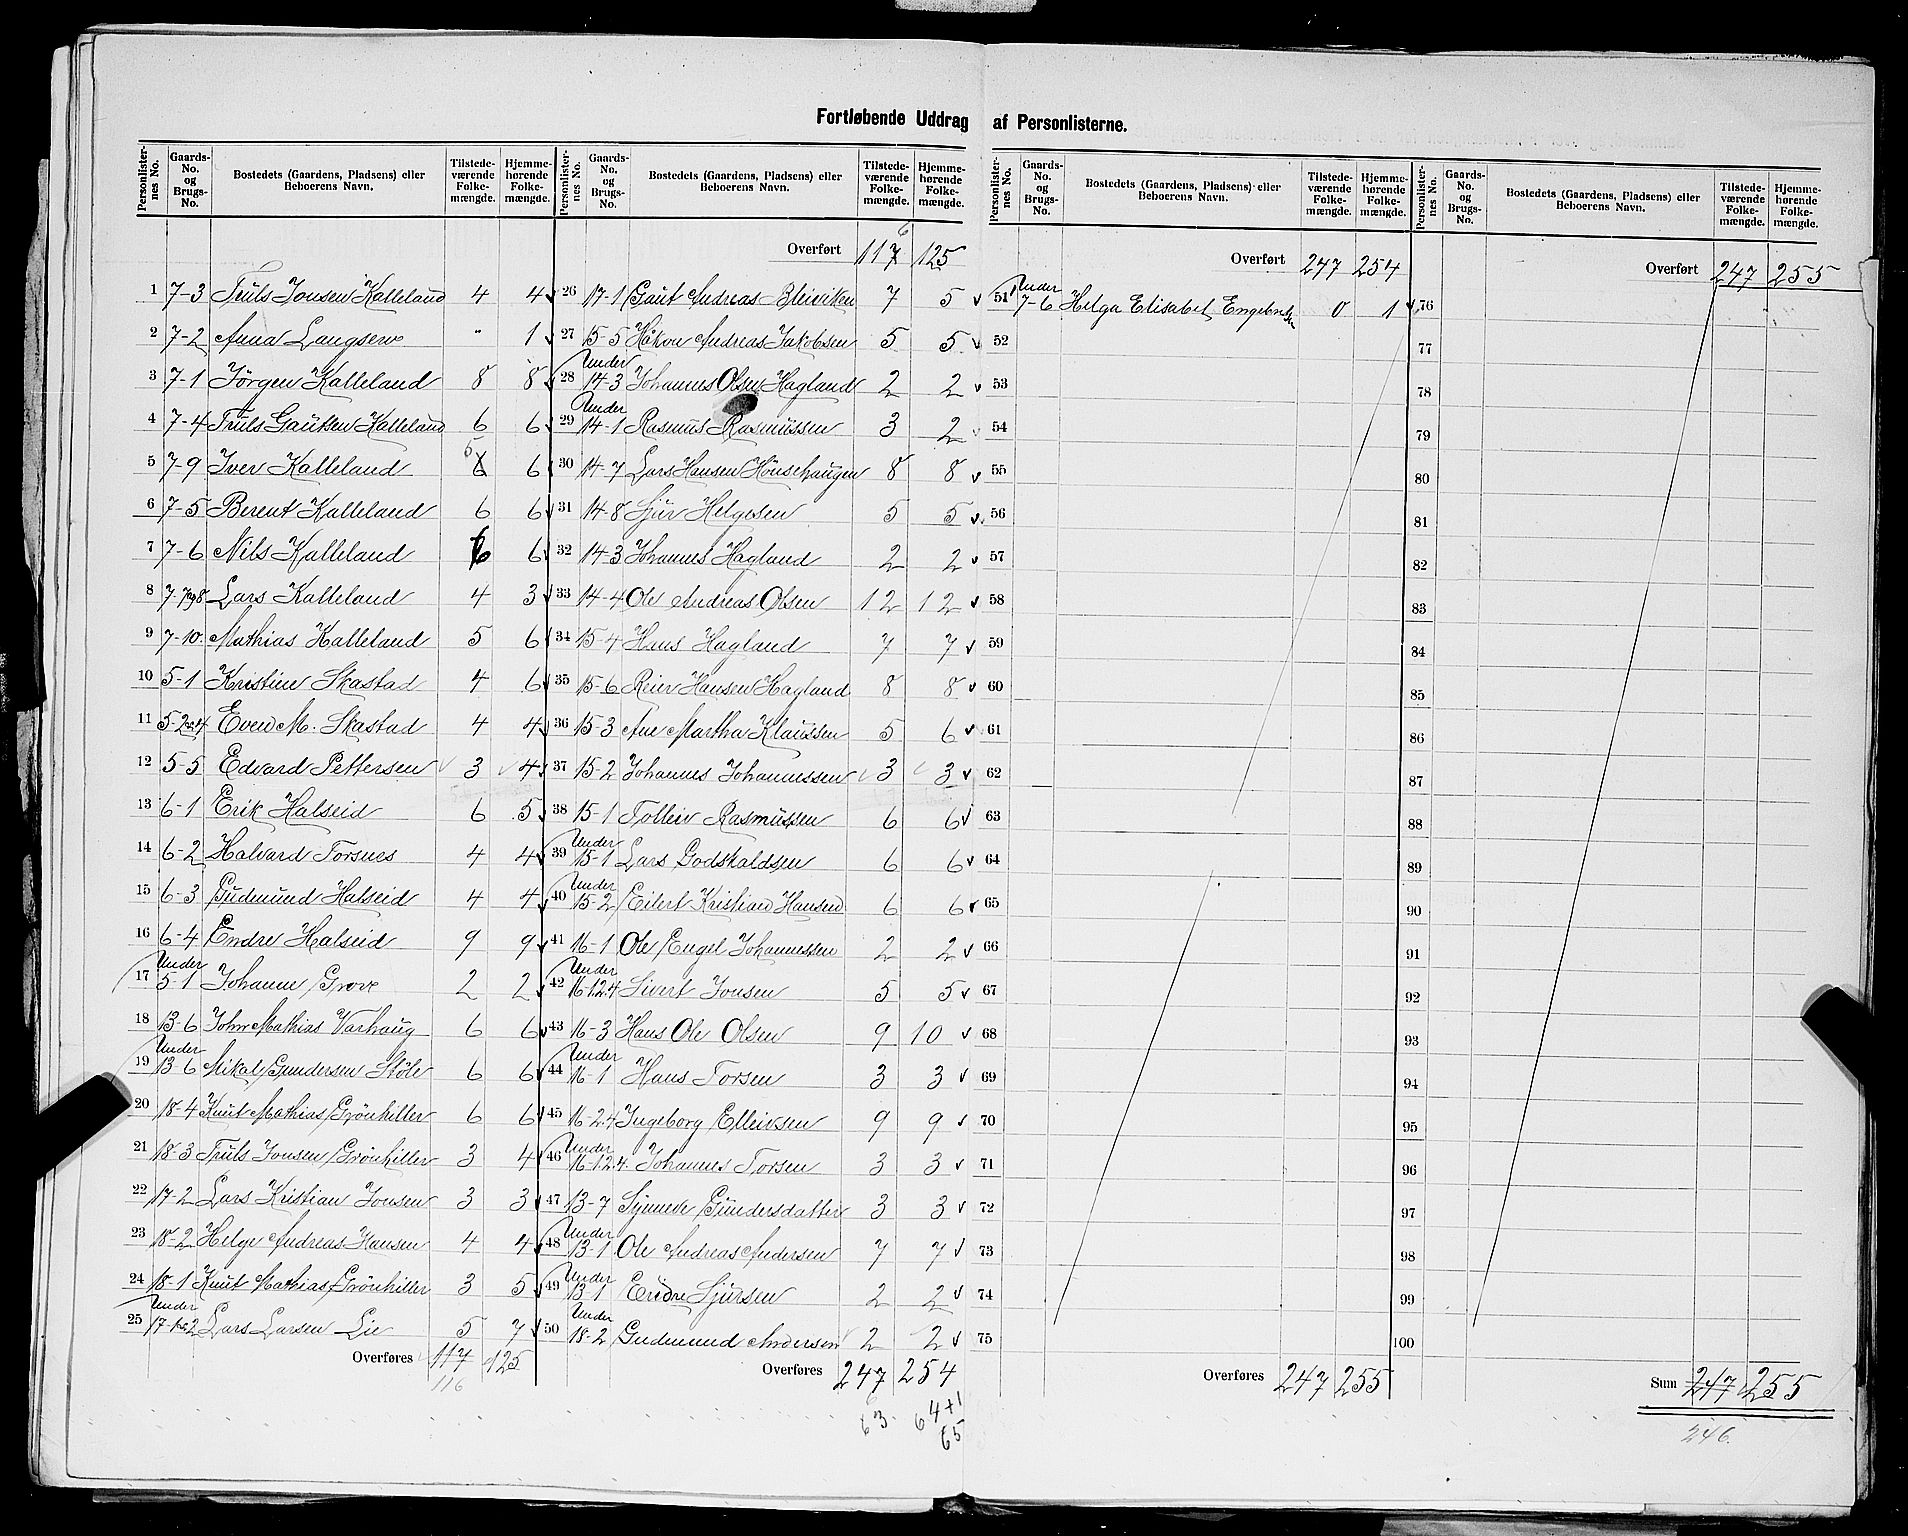 Fortløbende Uddrag af Personlisterne.
Personlister-nes No. Gaards-No. og Brugs-No. Bostedets (Gaardens, Pladsens) eller Beboerens Navn. Tilstede-værende Folke-mængde. Hjemme-hørende Folke-mængde.
1 7-3 Truls Jonsen Kalleland 4 4
2 7-2 Anna Langsew " 1
3 7-1 Jörgen Kalleland 8 8
4 7-4 Truls Gautsen Kalleland 6 6
5 7-9 Iver Kalleland 6 5 6
6 7-5 Berent Kalleland 6 6
7 7-6 Nils Kalleland 6 6
8 7-7og8 Lars Kalleland 4 3
9 7-10. Mathias Kalleland 5 6
10 5-1 Kristine Skastad 4 6
11 5-2&4 Even M. Skastad 4 4
12 5-5 Edvard Pettersen 3 4
13 6-1 Erik Halseid 6 5
14 6-2 Halvard Torsnes 4 4
15 6-3 Gudmund Halseid 4 4
16 6-4 Endre Halseid 9 9
17 Under 5-1 Johanne Grove 2 2
18 13-6 John Mathias Varhaug 6 6
19 Under 13-6 Mikal Gundersen Stöle 6 6
20 18-4 Knut Mathias Grönhiller 6 6
21 18-3 Truls Jonsen Grönhiller 3 4
22 17-2 Lars Kristian Jonsen 3 3
23 18-2 Helge Andreas Hansen 4 4
24 18-1 Knut Mathias Grönhiller 3 5
25 Under 17-1&2 Lars Larsen Lie 5 7
Overføres 117 125
116
Personlister-nes No. Gaards-No. og Brugs-No. Bostedets (Gaardens, Pladsens) eller Beboerens Navn. Tilstede-værende Folke-mængde. Hjemme-hørende Folke-mængde.
6
Overført 117 125
26 17-1 Gaut Andreas Bleiviken 7 5
27 15-5 Håkon Andreas Jakobsen 5 5
28 Under 14-3 Johannes Olsen Hagland 2 2
29 Under 14-1 Rasmus Rasmussen 3 2
30 14-7 Lars Hansen Hönsehaugen 8 8
31 14-8 Sjur Helgesen 5 5
32 14-3 Johannes Hagland 2 2
33 14-4 Ole Andreas Olsen 12 12
34 15-4 Hans Hagland 7 7
35 15-6 Reier Hansen Hagland 8 8
36 15-3 Ane Martha Klaussen 5 6
37 15-2 Johannes Johannessen 3 3
38 15-1 Tolleiv Rasmussen 6 6
39 Under 15-1 Lars Godskaldsen 6 6
40 Under 15-2 Eilert Kristian Hansen 6 6
41 16-1 Ole Engel Johannessen 2 2
42 Under 16-1.2.4 Sivert Jonsen 5 5
43 16-3 Hans Ole Olsen 9 10
44 Under 16-1 Hans Torsen 3 3
45 16-2.4 Ingeborg Elleivsen 9 9
46 Under 16-1.2.4. Johannes Torsen 3 3
47 13-7 Synneve Gundersdatter 3 3
48 Under 13-1 Ole Andreas Andersen 7 7
49 Under 13-1 Endre Sjursen 2 2
50 Under 18-2 Gudmund Andersen 2 2
Overføres 247 254
63. 64+1
65
Personlister-nes No. Gaards-No. og Brugs-No. Bostedets (Gaardens, Pladsens) eller Beboerens Navn. Tilstede-værende Folke-mængde. Hjemme-hørende Folke-mængde.
Overført 247 254
51 Under 7-6 Helga Elisabet Engebretsen 0 1
52
53
54
55
56
57
58
59
60
61
62
63
64
65
66
67
68
69
70
71
72
73
74
75
Overføres 247 255
Personlister-nes No. Gaards-No. og Brugs-No. Bostedets (Gaardens, Pladsens) eller Beboerens Navn. Tilstede-værende Folke-mængde. Hjemme-hørende Folke-mængde.
Overført 247 255
76
77
78
79
80
81
82
83
84
85
86
87
88
89
90
91
92
93
94
95
96
97
98
99
100
Sum 247 255
246.